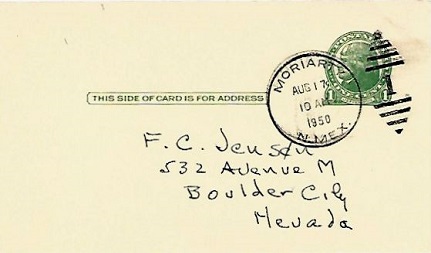 MORIARTY
AUG 17
10 AM
1950
N. MEX.
THIS SIDE OF CARD IS FOR ADDRESS
F. C. Jensen
532 Avenue M
Boulder City
Nevada